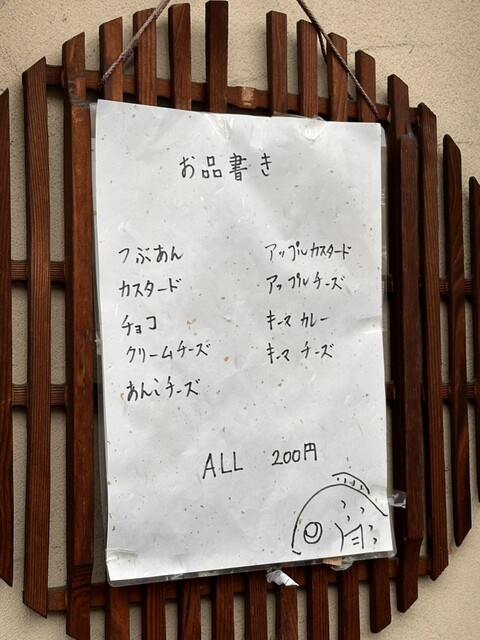 お品書き
つぶあん
カスタード
チョコ
クリームチーズ
あんこチーズ
アップルカスタード
アップルチーズ
キーマカレー
キーマチーズ
ALL 200円